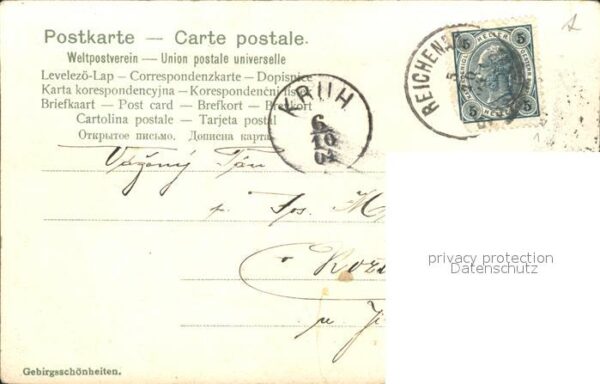 Postkarte — Carte postale.
Weltpostverein — Union postale universelle
Levelező-Lap — Correspondenzkarte — Dopisnice
Karta korespondencyjna — Korespondenční lístek
Briefkaart — Post card — Brefkort — Brevkort
Cartolina postale — Tarjeta postal
Открытое письмо. Дописна карта
KRUH
6
10
04
REICHENA
5 HELLER 5
5 HELLER 5
Vážený Pán
p. Jos. M
privacy protection
Datenschutz
Gebirgsschönheiten.